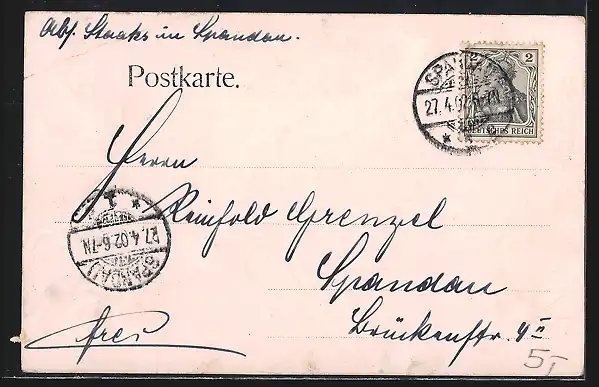 Abs. Staaks in Spandau.
Postkarte.
2
DEUTSCHES REICH
SPANDAU
27.4.02 6-7N
Herrn
Reinhold Grenzel
Spandau
Brückenstr. 4 II
frei
SPANDAU
27.4.02 6-7N
5,-